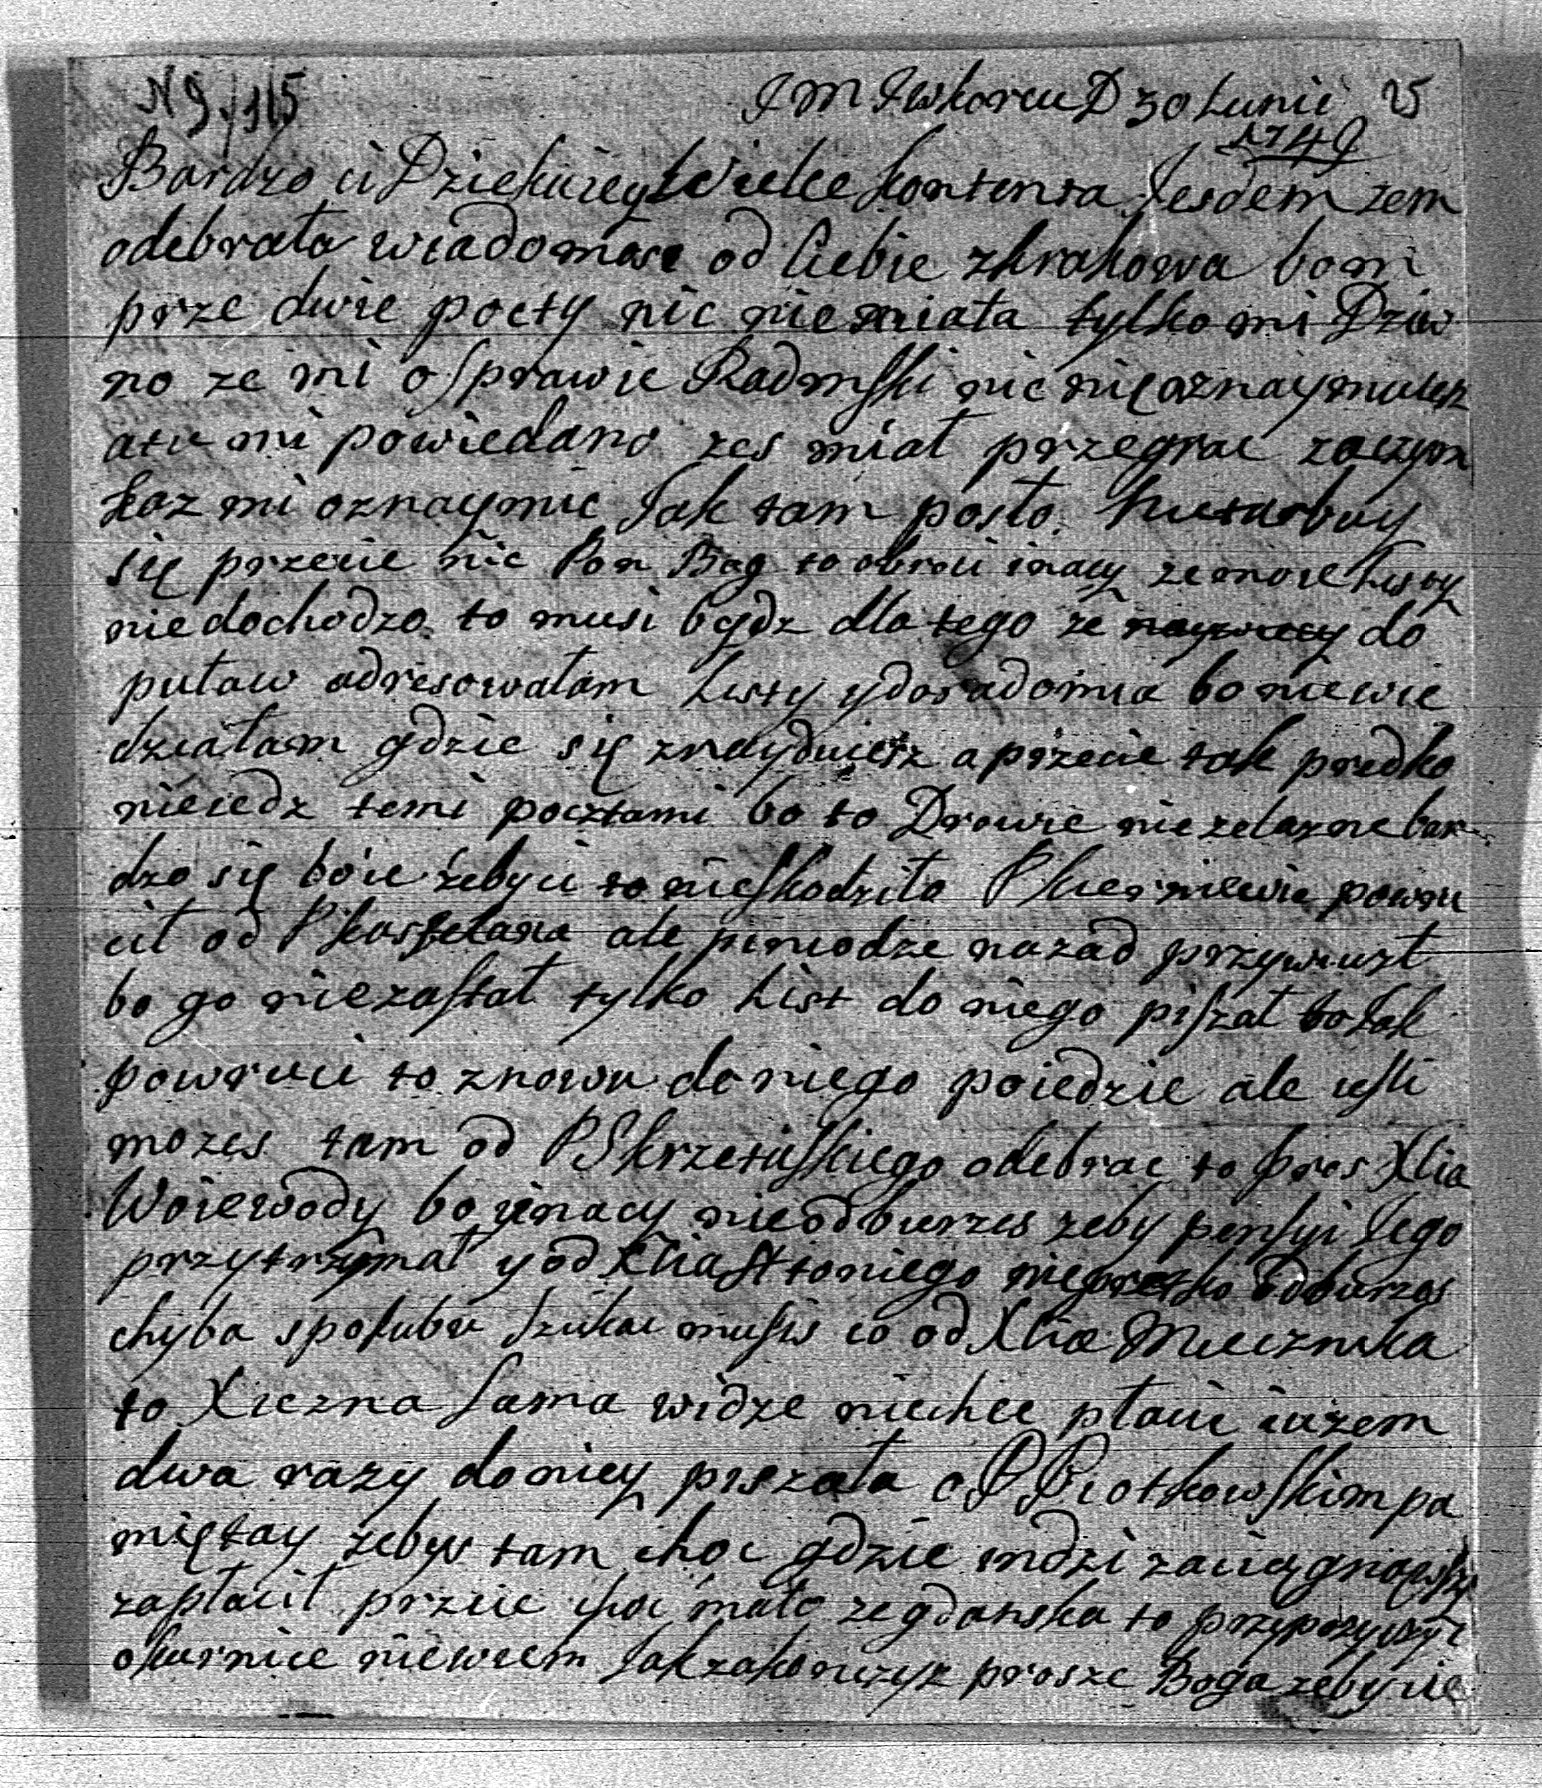 N 9. / 115
J M J wkorcu D 30 Lunii 25
1749
Bardzo ci Dziekuiey Wielce kontenta Jesdem zem
odebrała wiadomosc od Ciebie zkrakowa bom
prze dwie pocty nic niemiała tylko mi Dziw
no ze mi o sprawie Radmski nic nie oznaymuiesz
atu mi powiedano zes miał przegrac zaczym
kaz mi oznaymic Jak tam posło. kieturbuy
się przecie nic Pan Bog to obruci inacy ze moie Listy
niedochodzo to musi bydz dla tego ze do
puław adresowałam Listy ydoradomia bo niewie
działam gdzie się znayduiesz a przecie tak predko
nieiedz temi pocztami bo to Drowie niezelazne bar
dzo się boie zebyci to nieskodziło P powru
cił od P kasztelana ale pieniodze nazad przywiuzł
bo go niezastał tylko List do niego piszał bo Jak
powruci to znowu doniego poiedzie ale iesli
mozes tam od P Skrzetuskiego odebrac to pros Xcia
Woiewody bo inacy nieodbierzes zeby pensyi Jego
przytrzymał y od Xcia niepretko odbierzes
chyba sposubu szukac musis co od Xcia Miecznika
to Xiezna sama widze niechce płacic iuzem
dwa razy doniey piszała o P Piotkowskim pa
miętay zebys tam choc gdzie indzi zaciągnąwszy
zapłacił przecie choc mało zegdanska to przypozyczyc
okurnice niewiem Jak zakonczyz prosze Boga zebycie